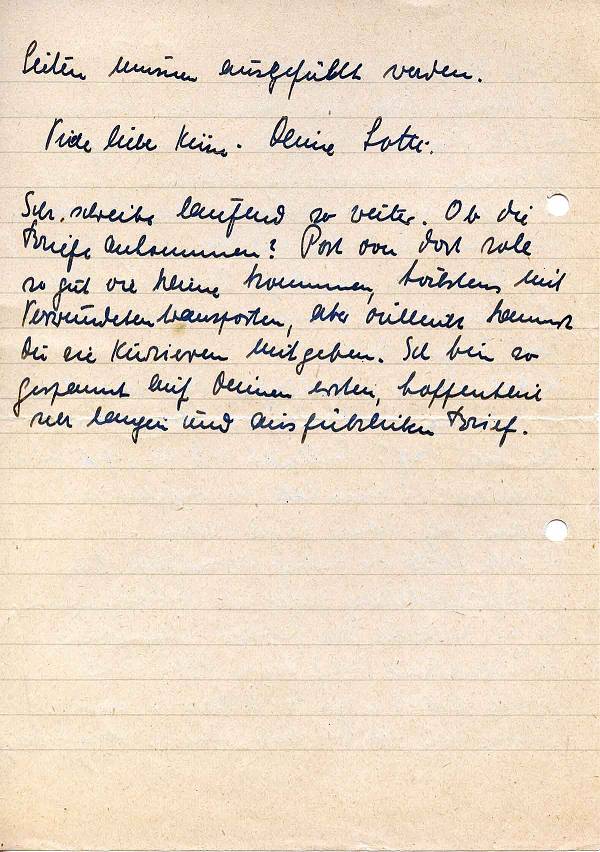 Seiten müssen ausgefüllt werden.
Viele liebe Küsse. Deine Lotti.
Ich schreibe laufend so weiter. Ob die
Briefe ankommen? Post von dort soll
so gut wie keine kommen, höchstens mit
Verwundetentransporten, aber vielleicht kannst
Du sie Kurieren mitgeben. Ich bin so
gespannt auf Deinen ersten, hoffentlich
sehr langen und ausführlichen Brief.